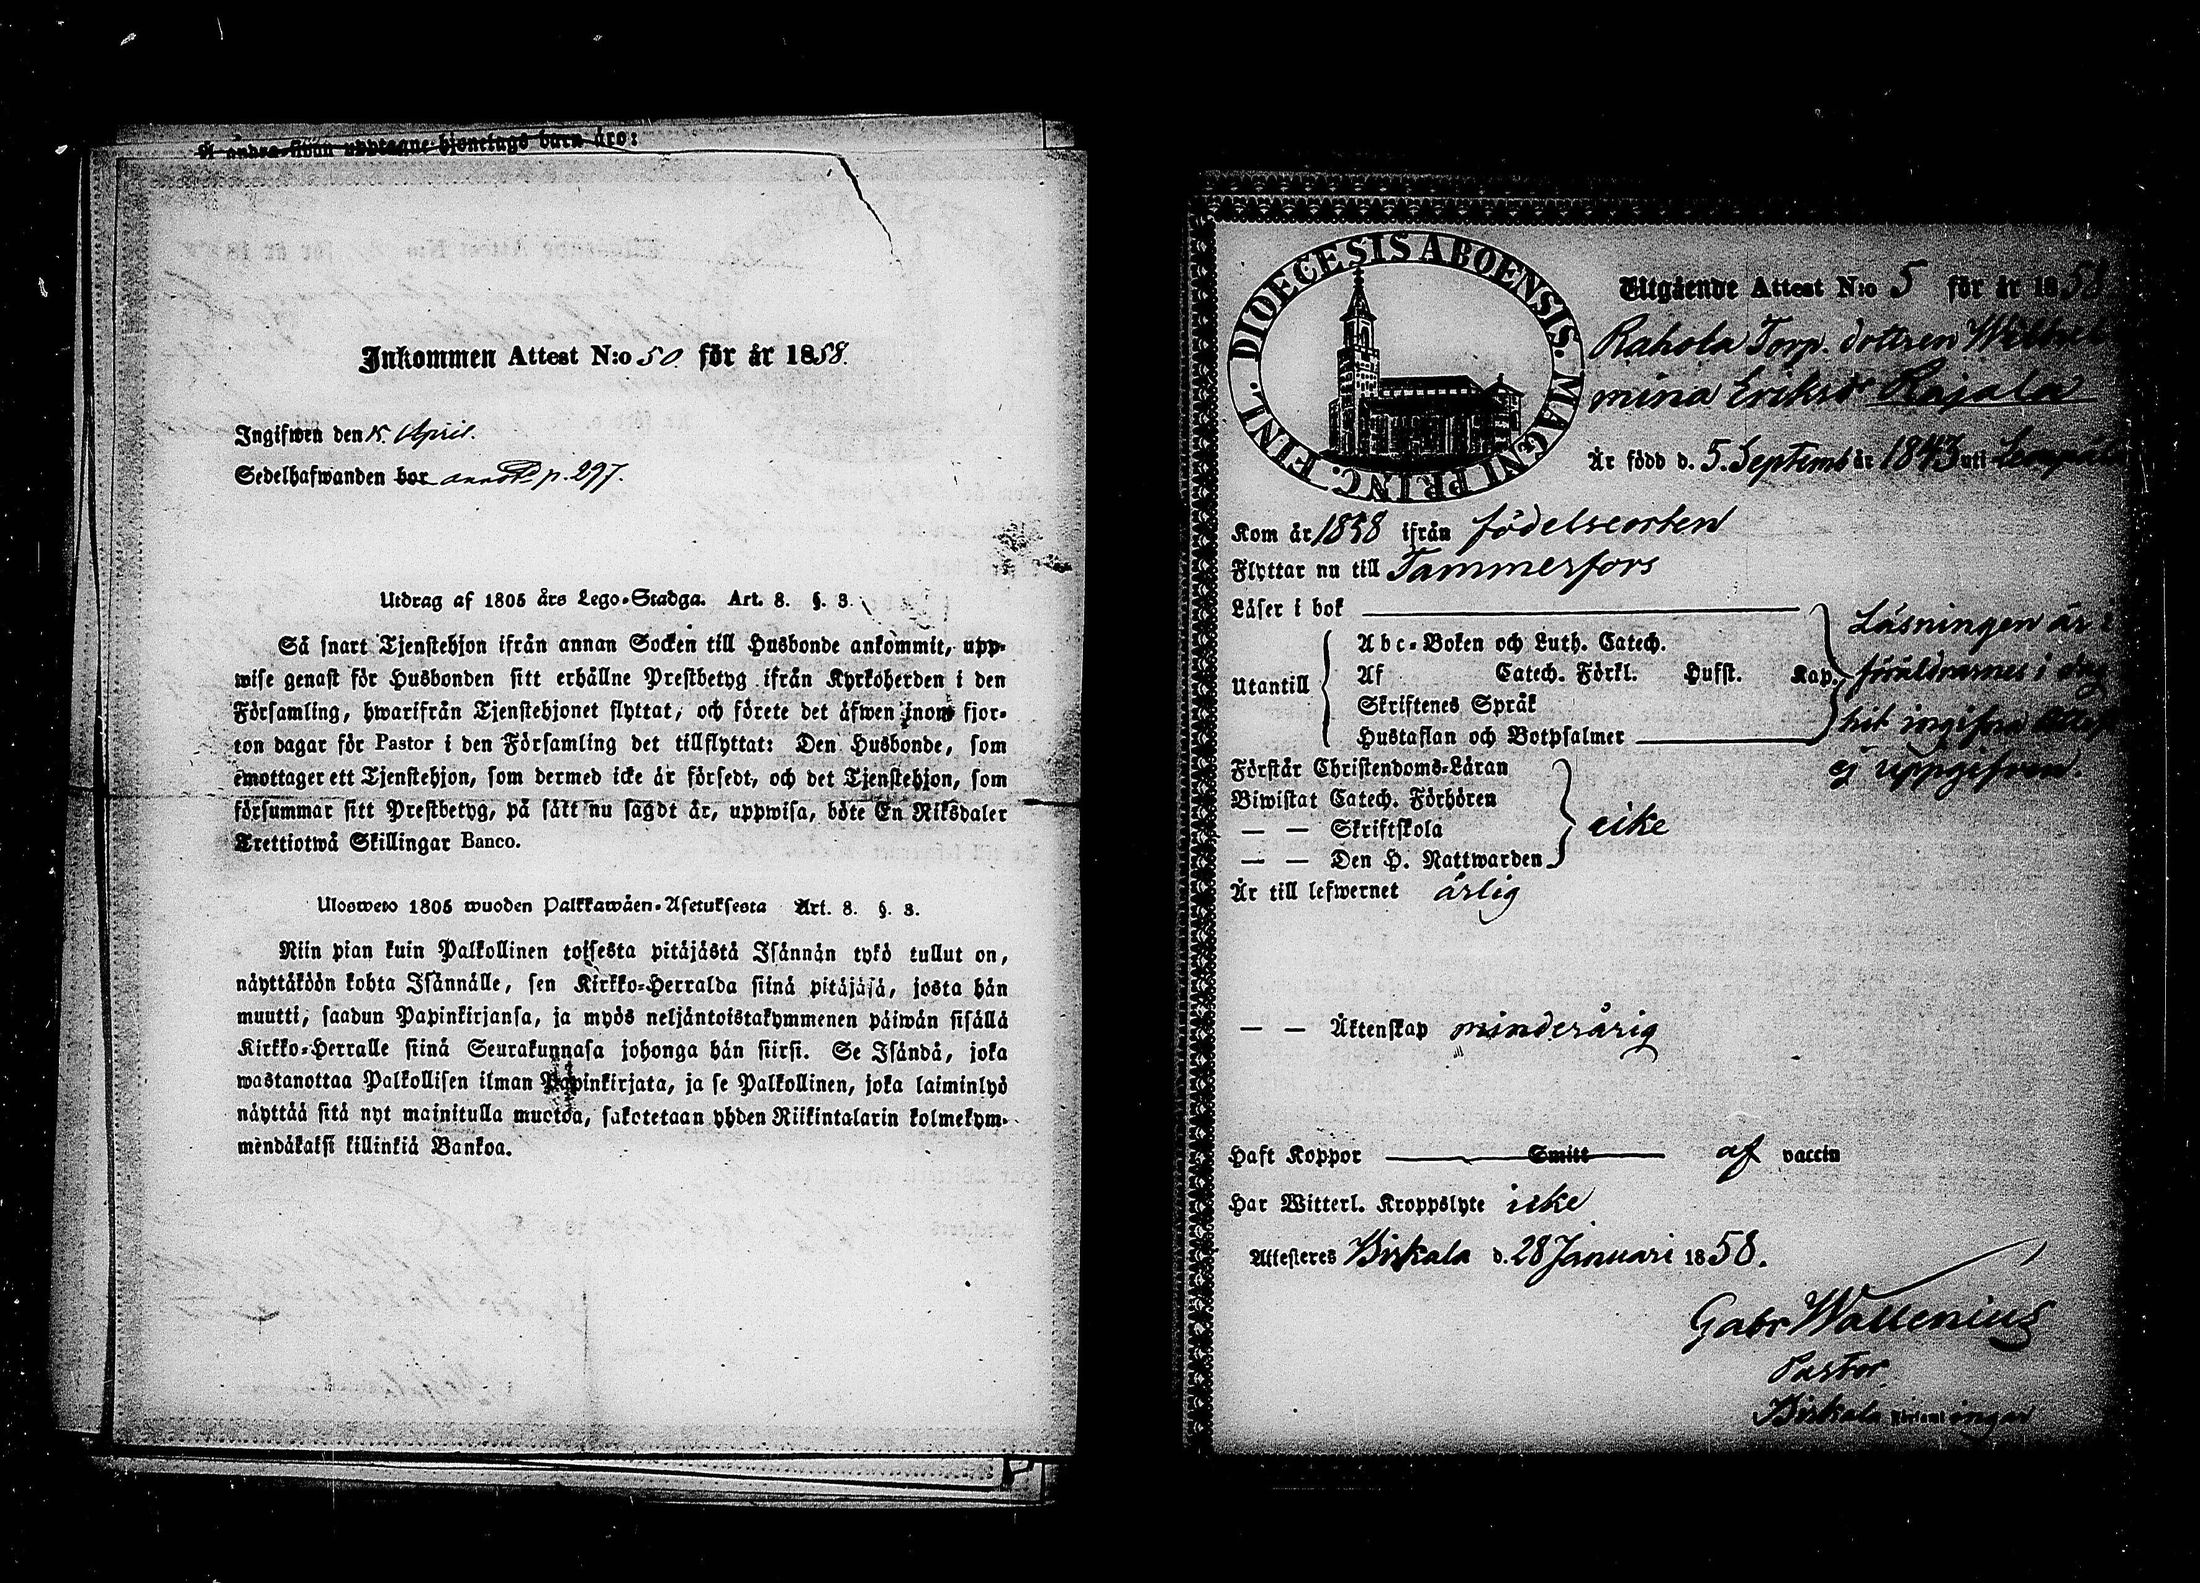 Å andra sidan upptagne hjonelags barn äro:
Inkommen Attest N:o 50 för år 1858.
Ingifwen den 15. April.
Sedelhafwanden bor annot. p. 297.
Utdrag af 1805 års Lego-Stadga. Art. 8. §. 3.
Så snart Tjenstehjon ifrån annan Socken till Husbonde ankommit, upp-
wise genast för Husbonden sitt erhållne Prestbetyg ifrån Kyrkoherden i den
Församling, hwarifrån Tjenstehjonet flyttat, och förete det äfwen inom fjor-
ton dagar för Pastor i den Församling det tillflyttat: Den Husbonde, som
emottager ett Tjenstehjon, som dermed icke är försedt, och det Tjenstehjon, som
försummar sitt Prestbetyg, på sätt nu sagdt är, uppwisa, böte En Riksdaler
Trettiotwå Skillingar Banco.
Ulosweto 1805 wuoden Palkkawäen-Asetuksesta Art. 8. §. 3.
Niin pian kuin Palkollinen toisesta pitäjästä Isännän tykö tullut on,
näyttäköön kohta Isännälle, sen Kirkko-Herralda siinä pitäjäsä, josta hän
muutti, saadun Papinkirjansa, ja myös neljäntoistakymmenen päiwän sisällä
Kirkko-Herralle siinä Seurakunnasa johonga hän siirsi. Se Isändä, joka
wastanottaa Palkollisen ilman Papinkirjata, ja se Palkollinen, joka laiminlyö
näyttää sitä nyt mainitulla muotoa, sakotetaan yhden Riikintalarin kolmekym-
mendäkaksi killinkiä Bankoa.
DIOECESIS ABOENSIS. MAGNI PRINC. FINL.
Utgående Attest N:o 5 för år 1858
Rahola Torp. dottren Wilhel
mina Eriksdr Rajala
Är född d. 5. Septemb år 1843 uti
Kom år 1858 ifrån födelseorten
Flyttar nu till Tammerfors
Läser i bok
Utantill
Abc-Boken och Luth. Catech.
Af Catech. Förkl. Hufst. Kap.
Skriftenes Språk
Hustaflan och Botpsalmer
Läsningen är i
föräldrarnes i dag
hit ingifna Attest
ej uppgifven.
Förstår Christendoms-Läran
Biwistat Catech. Förhören
— — Skriftskola
— — Den H. Nattwarden
icke
Är till lefwernet ärlig
— — Äktenskap minderårig
Haft Koppor Smitt af vaccin
Har Witterl. Kroppslyte icke
Attesteres Birkala d. 28 Januari 1858.
Gabr Wallenius
Pastor
Birkala